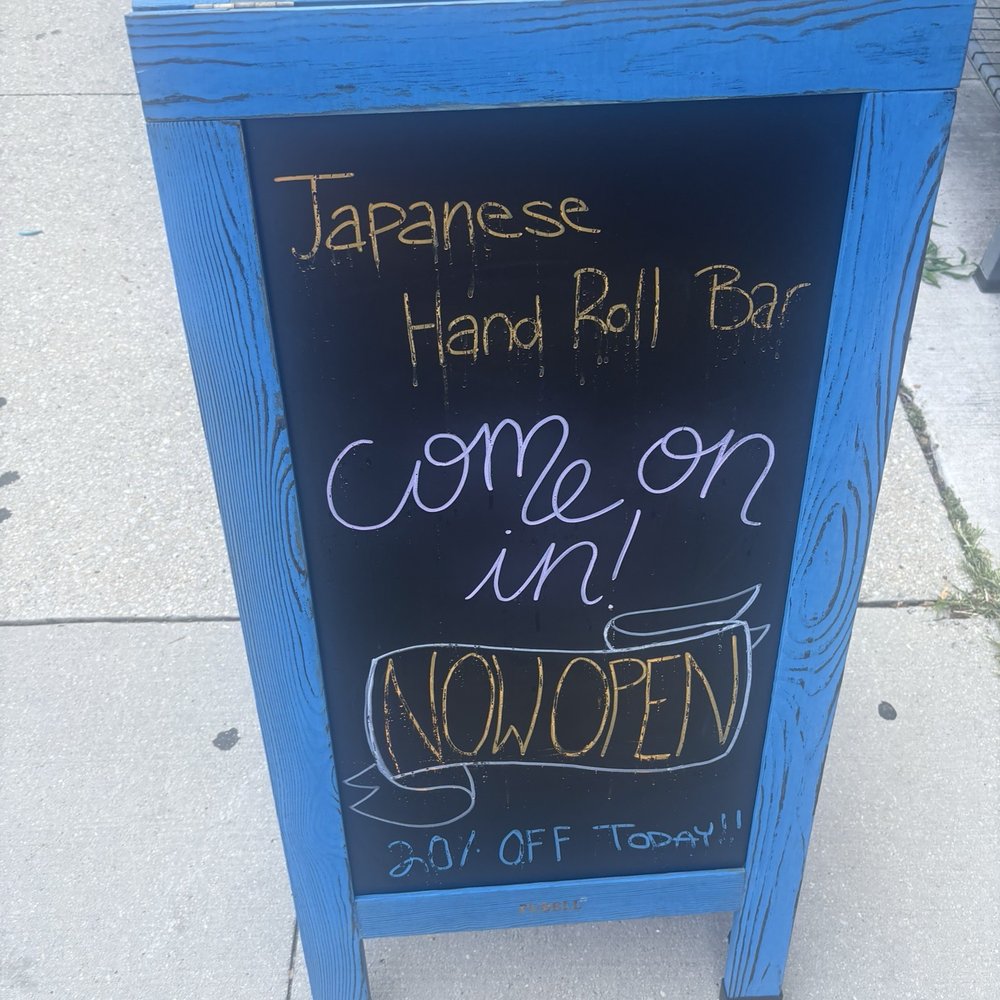 Japanese
Hand Roll Bar
Come on
in!
NOW OPEN
20% OFF TODAY!!